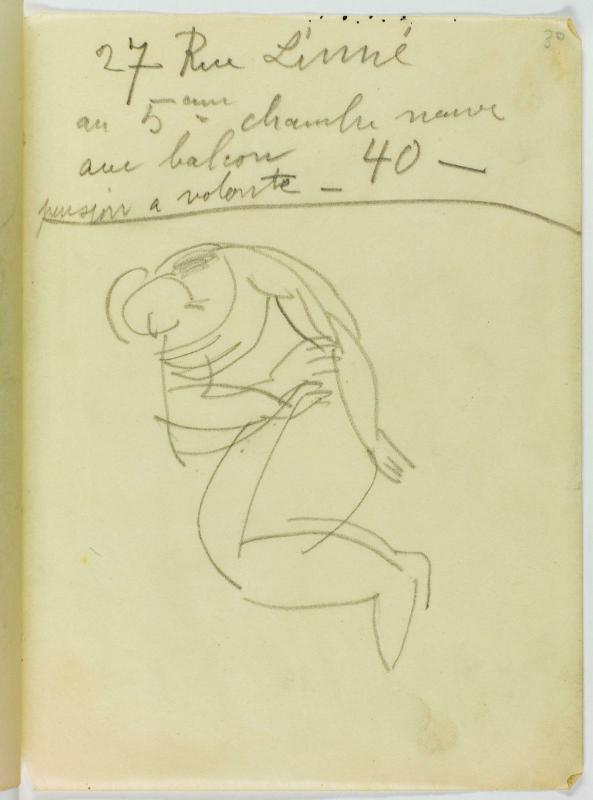 30
27 Rue Linné
au 5 eme chambre neuve
avec balcon 40 —
pension a volonte —